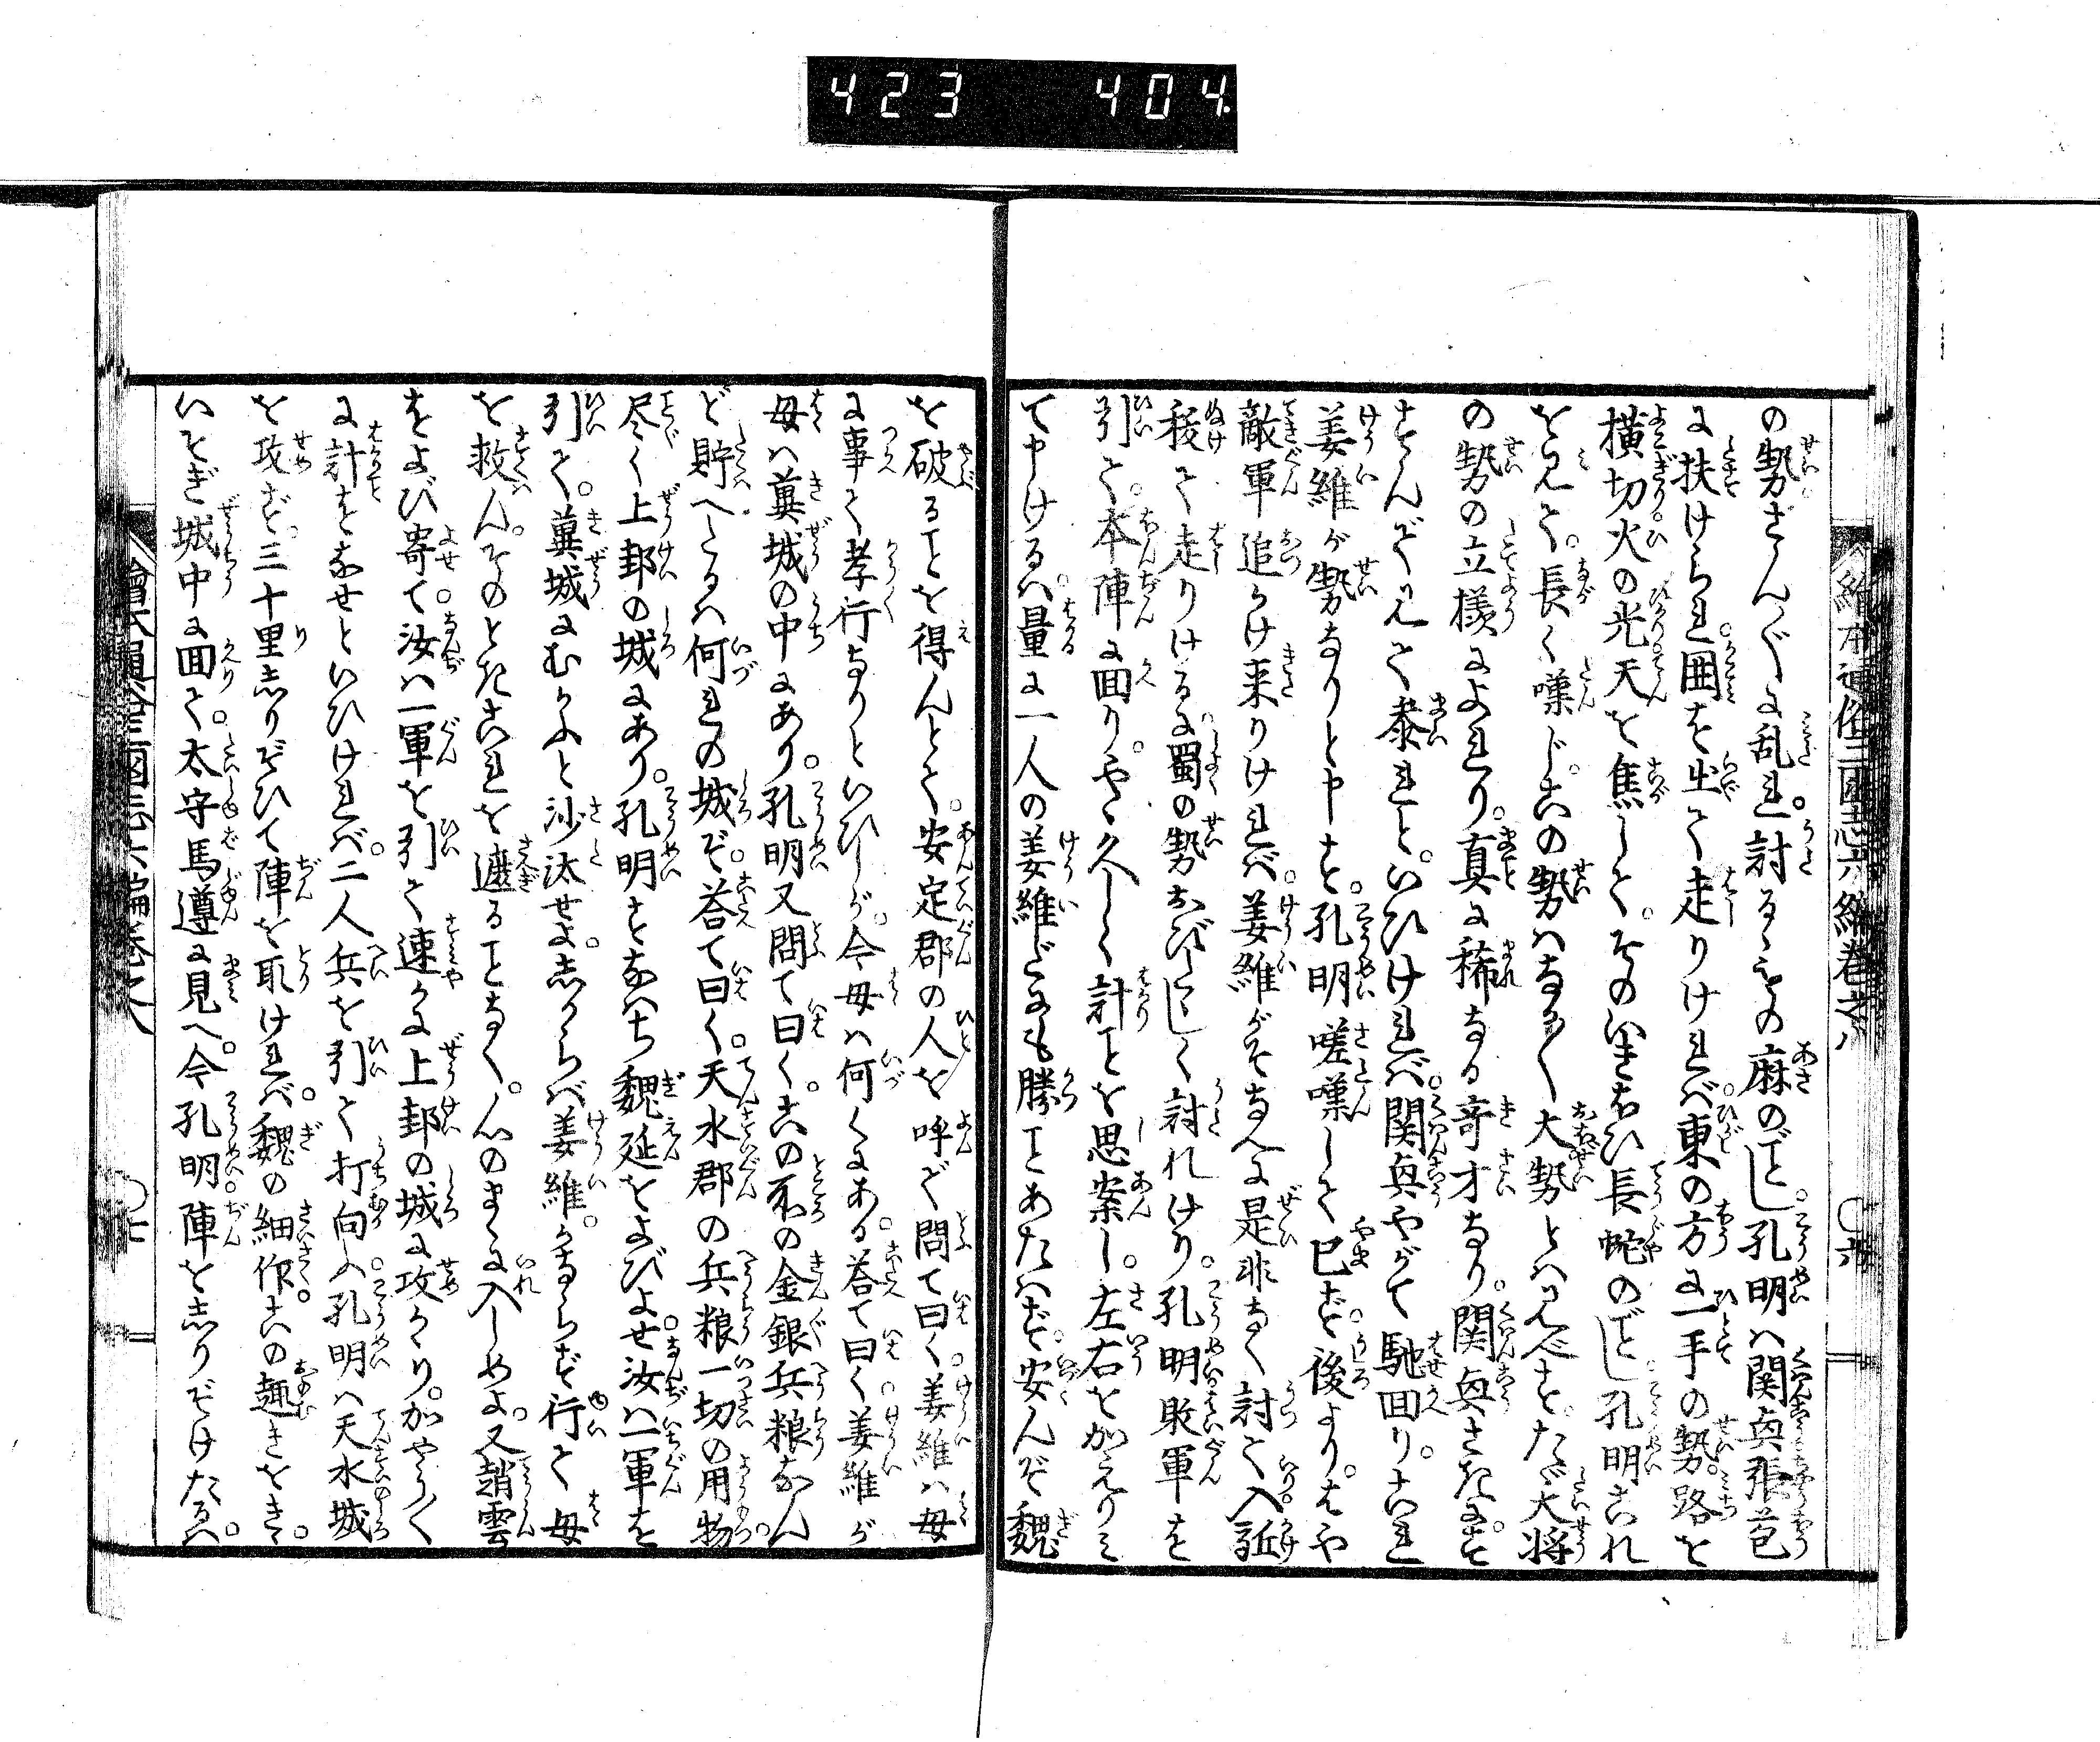 423 404
繪本通俗三國志六編卷之八
〇六
の勢さん〴〵に乱れ。討るゝもの麻のごとし。孔明ハ関興張苞
に扶けられ。囲を出て走りければ。東の方に一手の勢。路を
横切。火の光天を焦して。そのいきおひ長蛇のごとし。孔明これ
を見て。長く嘆じ。この勢ハなか〳〵大勢とハ見へず。たゞ大将
の勢の立様によれり。真に稀なる奇才なり。関興さきにす
すんで見て参れと。いひければ。関興やがて馳回り。これ
姜維が勢なりと申す。孔明嗟嘆して已ず。後より。はや
敵軍追かけ来りければ。姜維がそなへに是非なく討て入。駈
稜て走りけるに。蜀の勢おびたゞしく討れけり。孔明敗軍を
引て。本陣に回り。やゝ久しく計ことを思案し。左右をかえりミ
て申けるハ。量に一人の姜維だにも勝ことあたハず。安んぞ魏
を破ることを得んとて。安定郡の人を呼で問て曰く。姜維ハ母
に事て孝行なりといひしが。今母ハ何くにある。答て曰く。姜維が
母ハ冀城の中にあり。孔明又問て曰く。この所の金銀兵粮なん
ど貯へたるハ何れの城ぞ。答て曰く。天水郡の兵粮一切の用物。
尽く上邽の城にあり。孔明すなハち魏延をよびよせ。汝ハ一軍を
引て。冀城にむかふと沙汰せよ。しからバ姜維。かならず行て母
を救ん。そのときこれを遮ることなく。心のまゝに入しめよ。又趙雲
をよび寄て。汝ハ一軍を引て速かに上邽の城に攻かゝり。かやう〳〵
に計をなせといひければ。二人兵を引て打向ふ。孔明ハ天水城
を攻ず。三十里しりぞひて陣を取ければ。魏の細作この趣きをきゝ。
いそぎ城中に回て。太守馬遵に見へ。今孔明。陣をしりぞけたるハ。
繪本通俗三國志六編卷之八
〇七